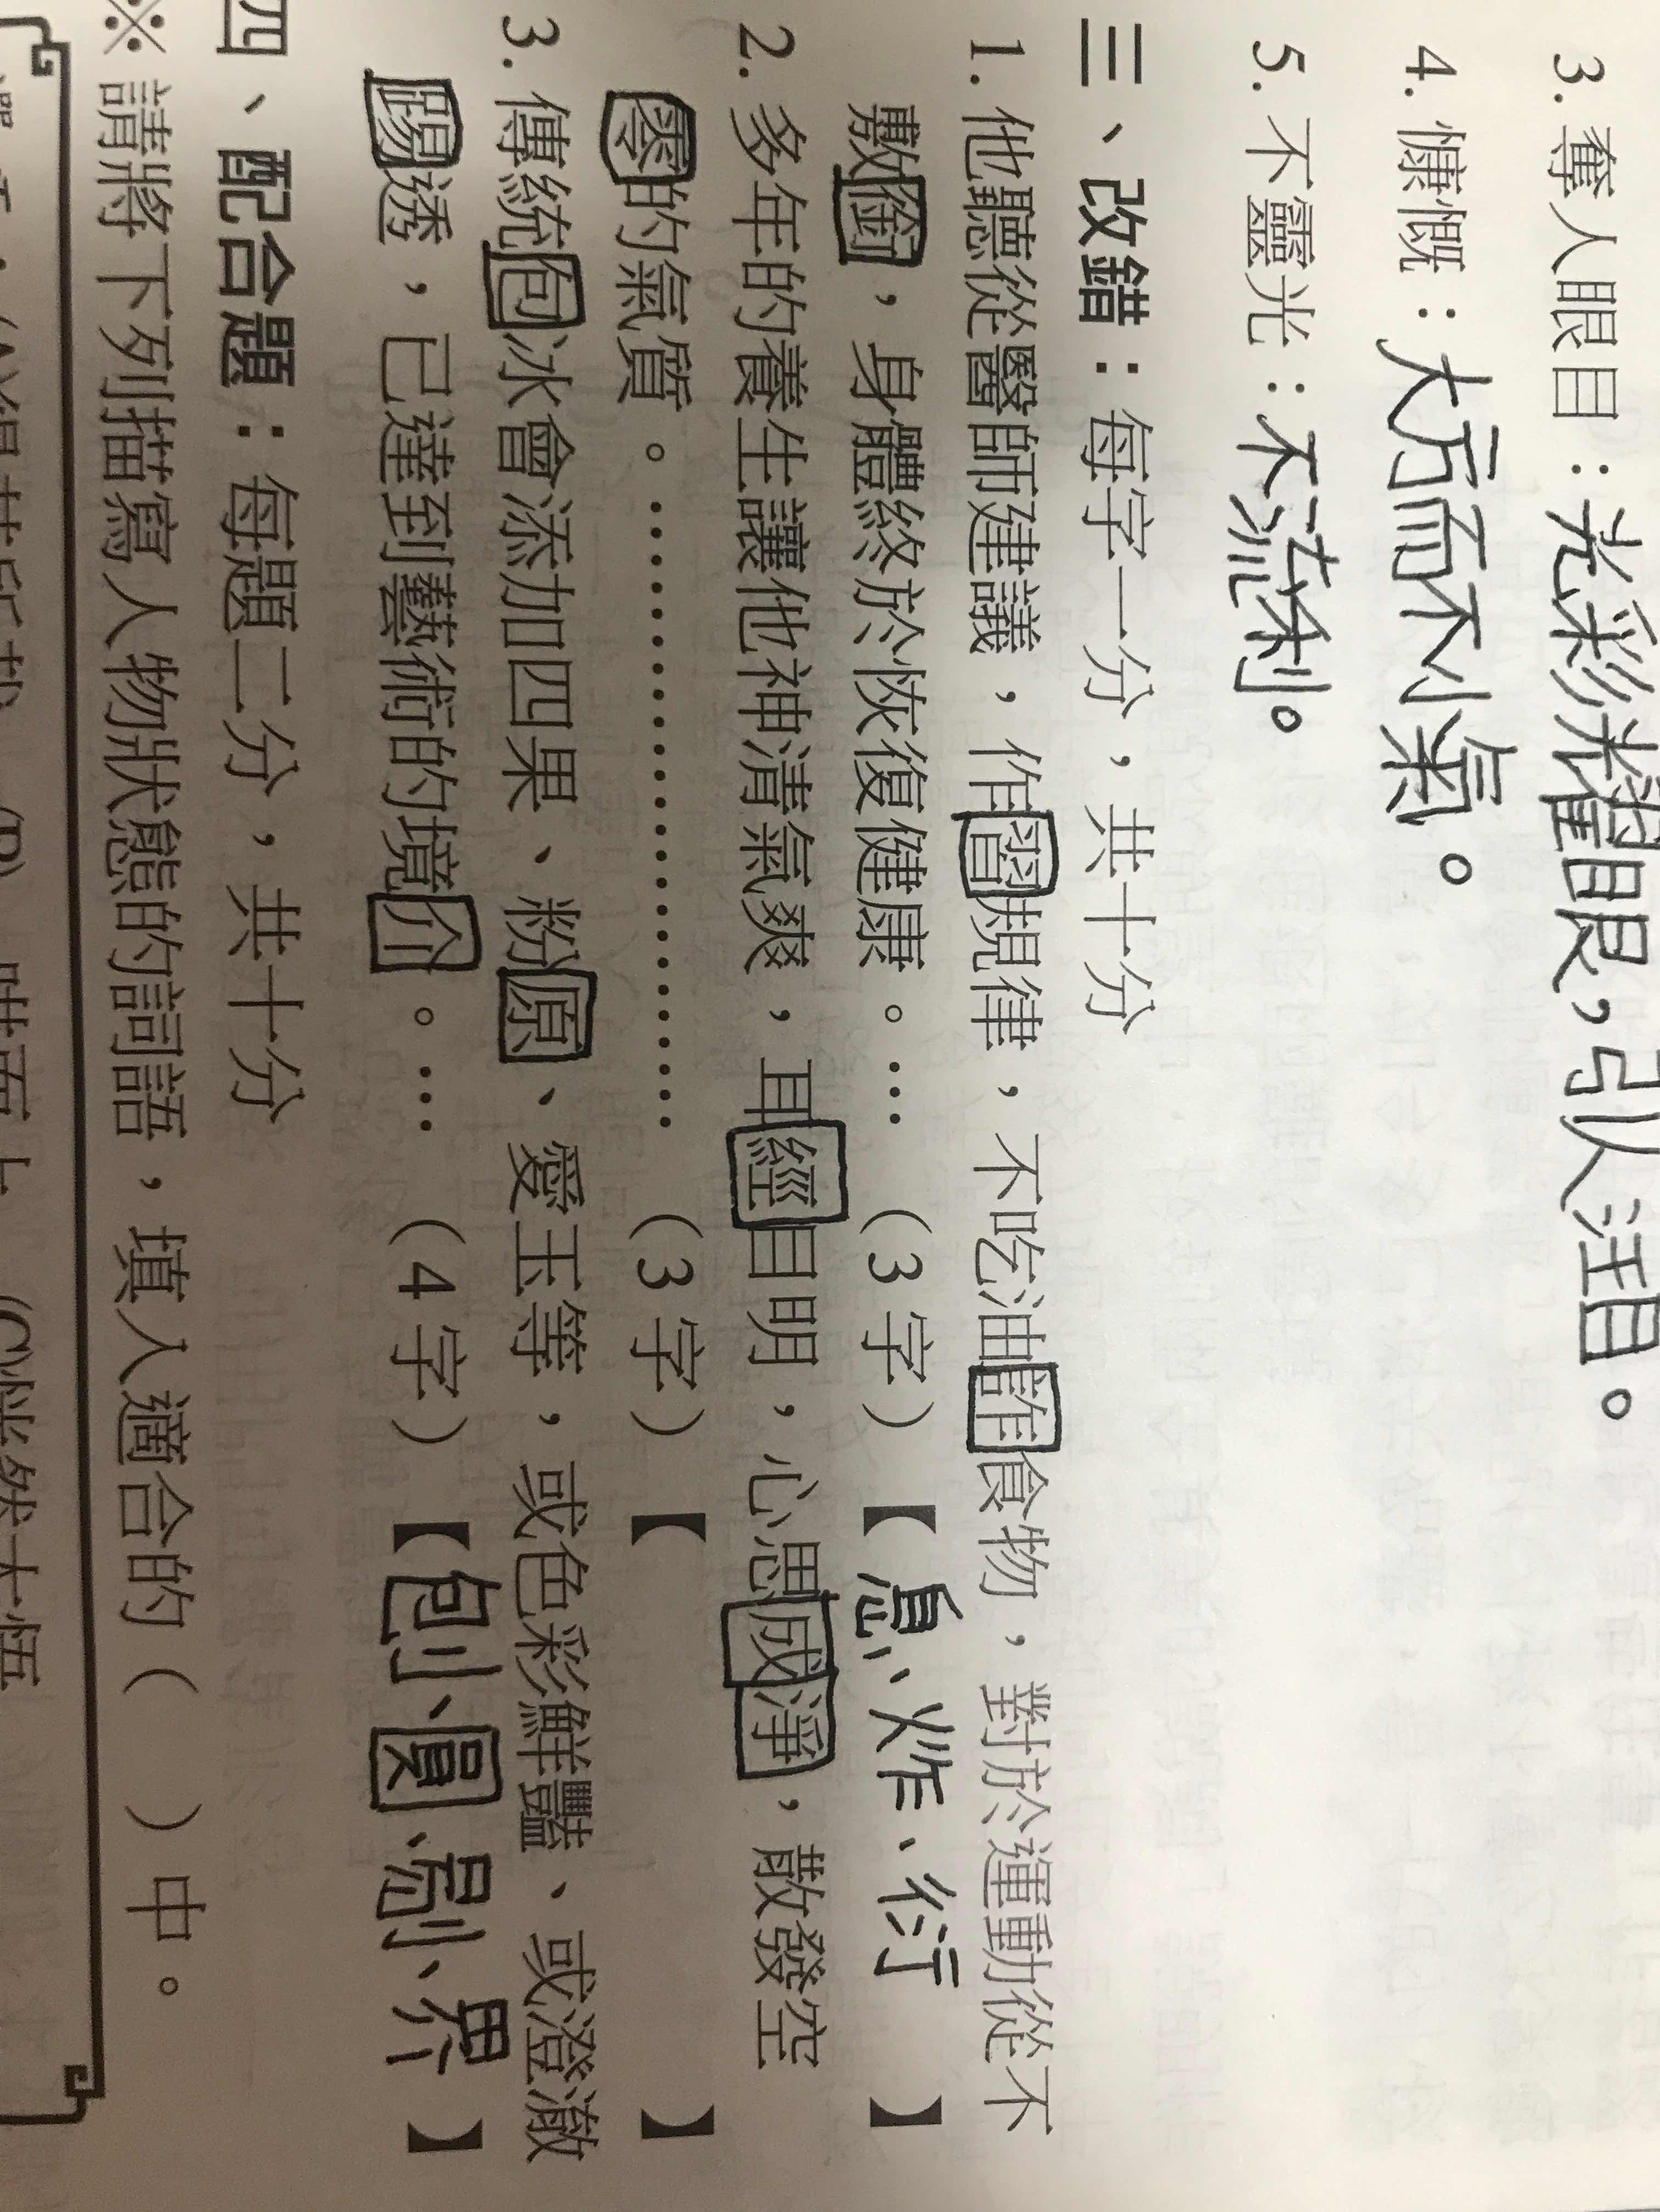 3. 奪人眼目：光彩耀眼，引人注目。
4. 慷慨：大方而不小氣。
5. 不靈光：不流利。
三、改錯：每字一分，共十分
1. 他聽從醫師建議，作習規律，不吃油詐食物，對於運動從不
敷銜，身體終於恢復健康。…（3字）【息、炸、衍】
2. 多年的養生讓他神清氣爽，耳經目明，心思成淨，散發空
零的氣質。……………………（3字）【　】
3. 傳統包冰會添加四果、粉原、愛玉等，或色彩鮮豔、或澄澈
踢透，已達到藝術的境介。…（4字）【刨、圓、剔、界】
四、配合題：每題二分，共十分
※請將下列描寫人物狀態的詞語，填入適合的（　）中。